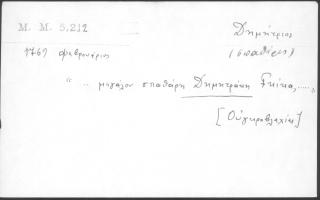 Μ. Μ. 5,212
Δημήτριος
(σπαθάρης)
1769 φεβρουάριος
“.. μεγάλου σπαθάρη Δημητράκη Γκίκα, ....."
[Οὐγκροβλαχίας]